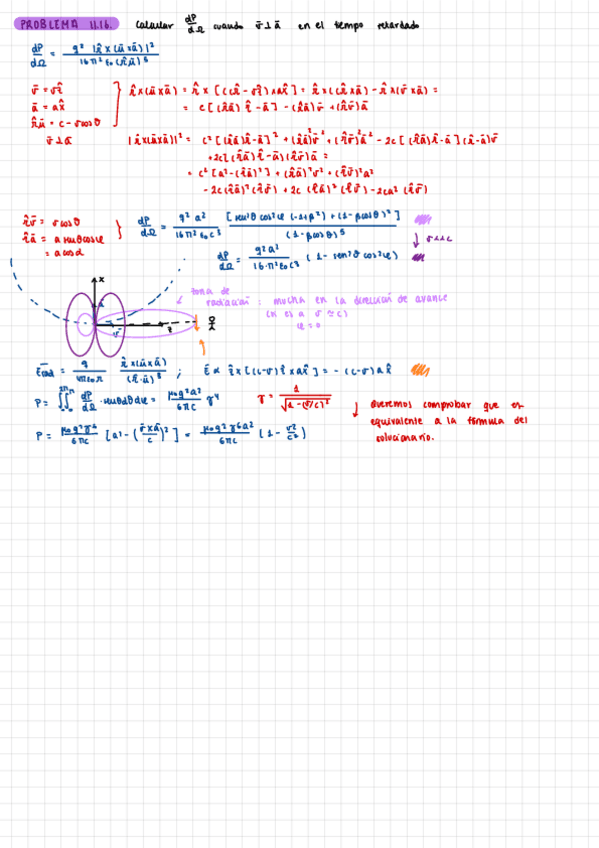 PROBLEMA 11.16. Calcular dP/dΩ cuando v̄⊥ā en el tiempo retardado
dP/dΩ = q² |r̂×(ū×ā)|² / 16π²ε₀(r̂ū)⁵
v̄ = vẑ
ā = ax̂
r̂ū = c - vcosθ
v̄⊥ā
r̂×(ū×ā) = r̂×[(cr̂ - vẑ)×ax̂] = r̂×(cr̂×ā) - r̂×(v̄×ā) =
= c[(r̂ā)r̂ - ā] - (r̂ā)v̄ + (r̂v̄)ā
|r̂×(ū×ā)|² = c²[(r̂ā)r̂-ā]² + (r̂ā)²v̄² + (r̂v̄)²ā² - 2c[(r̂ā)r̂-ā](r̂·ā)v̄
+2c[(r̂ā)r̂-ā)(r̂v̄)ā =
= c²[a²-(r̂ā)²] + (r̂ā)²v² + (r̂v̄)²a²
- 2c(r̂ā)²(r̂v̄) + 2c(r̂ā)²(r̂v̄) - 2ca²(r̂v̄)
r̂v̄ = vcosθ
r̂ā = a senθcosφ
= a cosα
dP/dΩ = q²a² / 16π²ε₀c³ [sen²θ cos²φ (-1+β²) + (1-βcosθ)²] / (1-βcosθ)⁵
↓ v<<c
dP/dΩ = q²a² / 16·π²ε₀c³ (1 - sen²θ cos²φ)
x
ā
v̄
z
zona de
radiación: mucha en la dirección de avance
(si es a v ≃ c)
φ=0
Ērad = q / 4πε₀r r̂×(ū×ā) / (r̂·ū)³ ; Ē α ẑ×[(c-v)ẑ×ax̂] = -(c-v)a x̂
P = ∬ dP/dΩ · senθdθdφ = μ₀q²a² / 6πc γ⁴
γ = 1 / √(1-(v/c)²)
↓ Queremos comprobar que es
equivalente a la fórmula del
solucionario.
P = μ₀q²γ⁶ / 6πc [a² - (v̄×ā / c)²] = μ₀q²γ⁶a² / 6πc (1 - v²/c²)